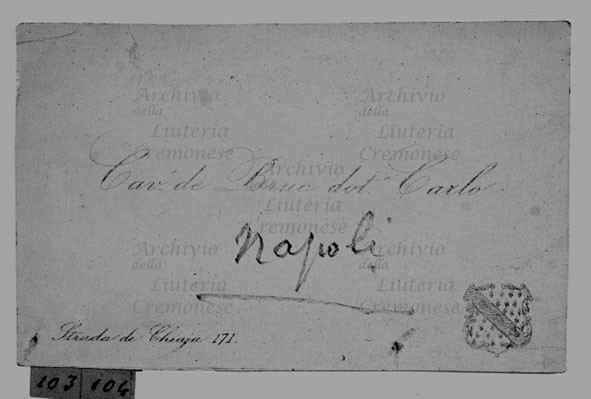 Archivio Archivio
della della
Liuteria Liuteria
Cremonese Cremonese
Archivio
della
Liuteria
Cremonese
Cav. de dot. Carlo
Napoli
Archivio Archivio
della della
Liuteria Liuteria
Cremonese Cremonese
Strada de Chiaja 171.
103 104